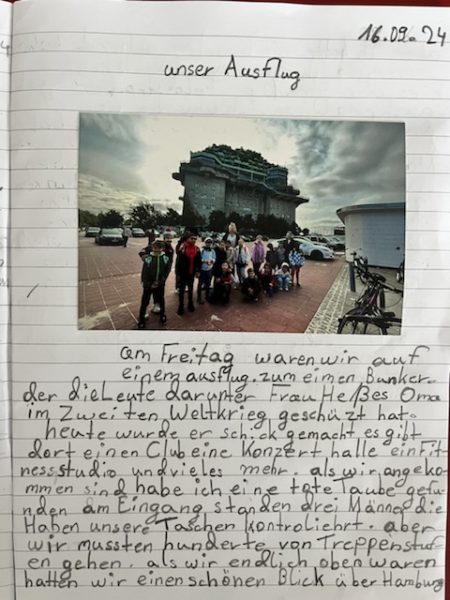 16.09.24
unser Ausflug
am Freitag waren wir auf
einem ausflug. zum eimen Bunker.
der die Leute darunter Frau Heßes Oma
im Zweiten Weltkrieg geschüzt hat.
heute wurde er schick gemacht es gibt
dort einen Club eine Konzert halle ein Fit-
nessstudio und vieles mehr. als wir angeko-
mmen sind habe ich eine tote Taube gefu-
nden am Eingang standen drei Männer die
Haben unsere Taschen kontroliehrt. aber
wir mussten hunderte von Treppenstuf-
en gehen. als wir endlich oben waren
hatten wir einen schönen Blick über Hamburg